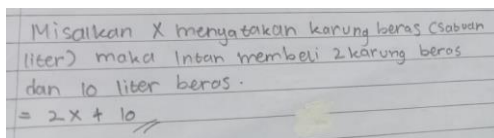 Misalkan X menyatakan karung beras (Sabuan
liter) maka Intan membeli 2 karung beras
dan 10 liter beras.
= 2x + 10